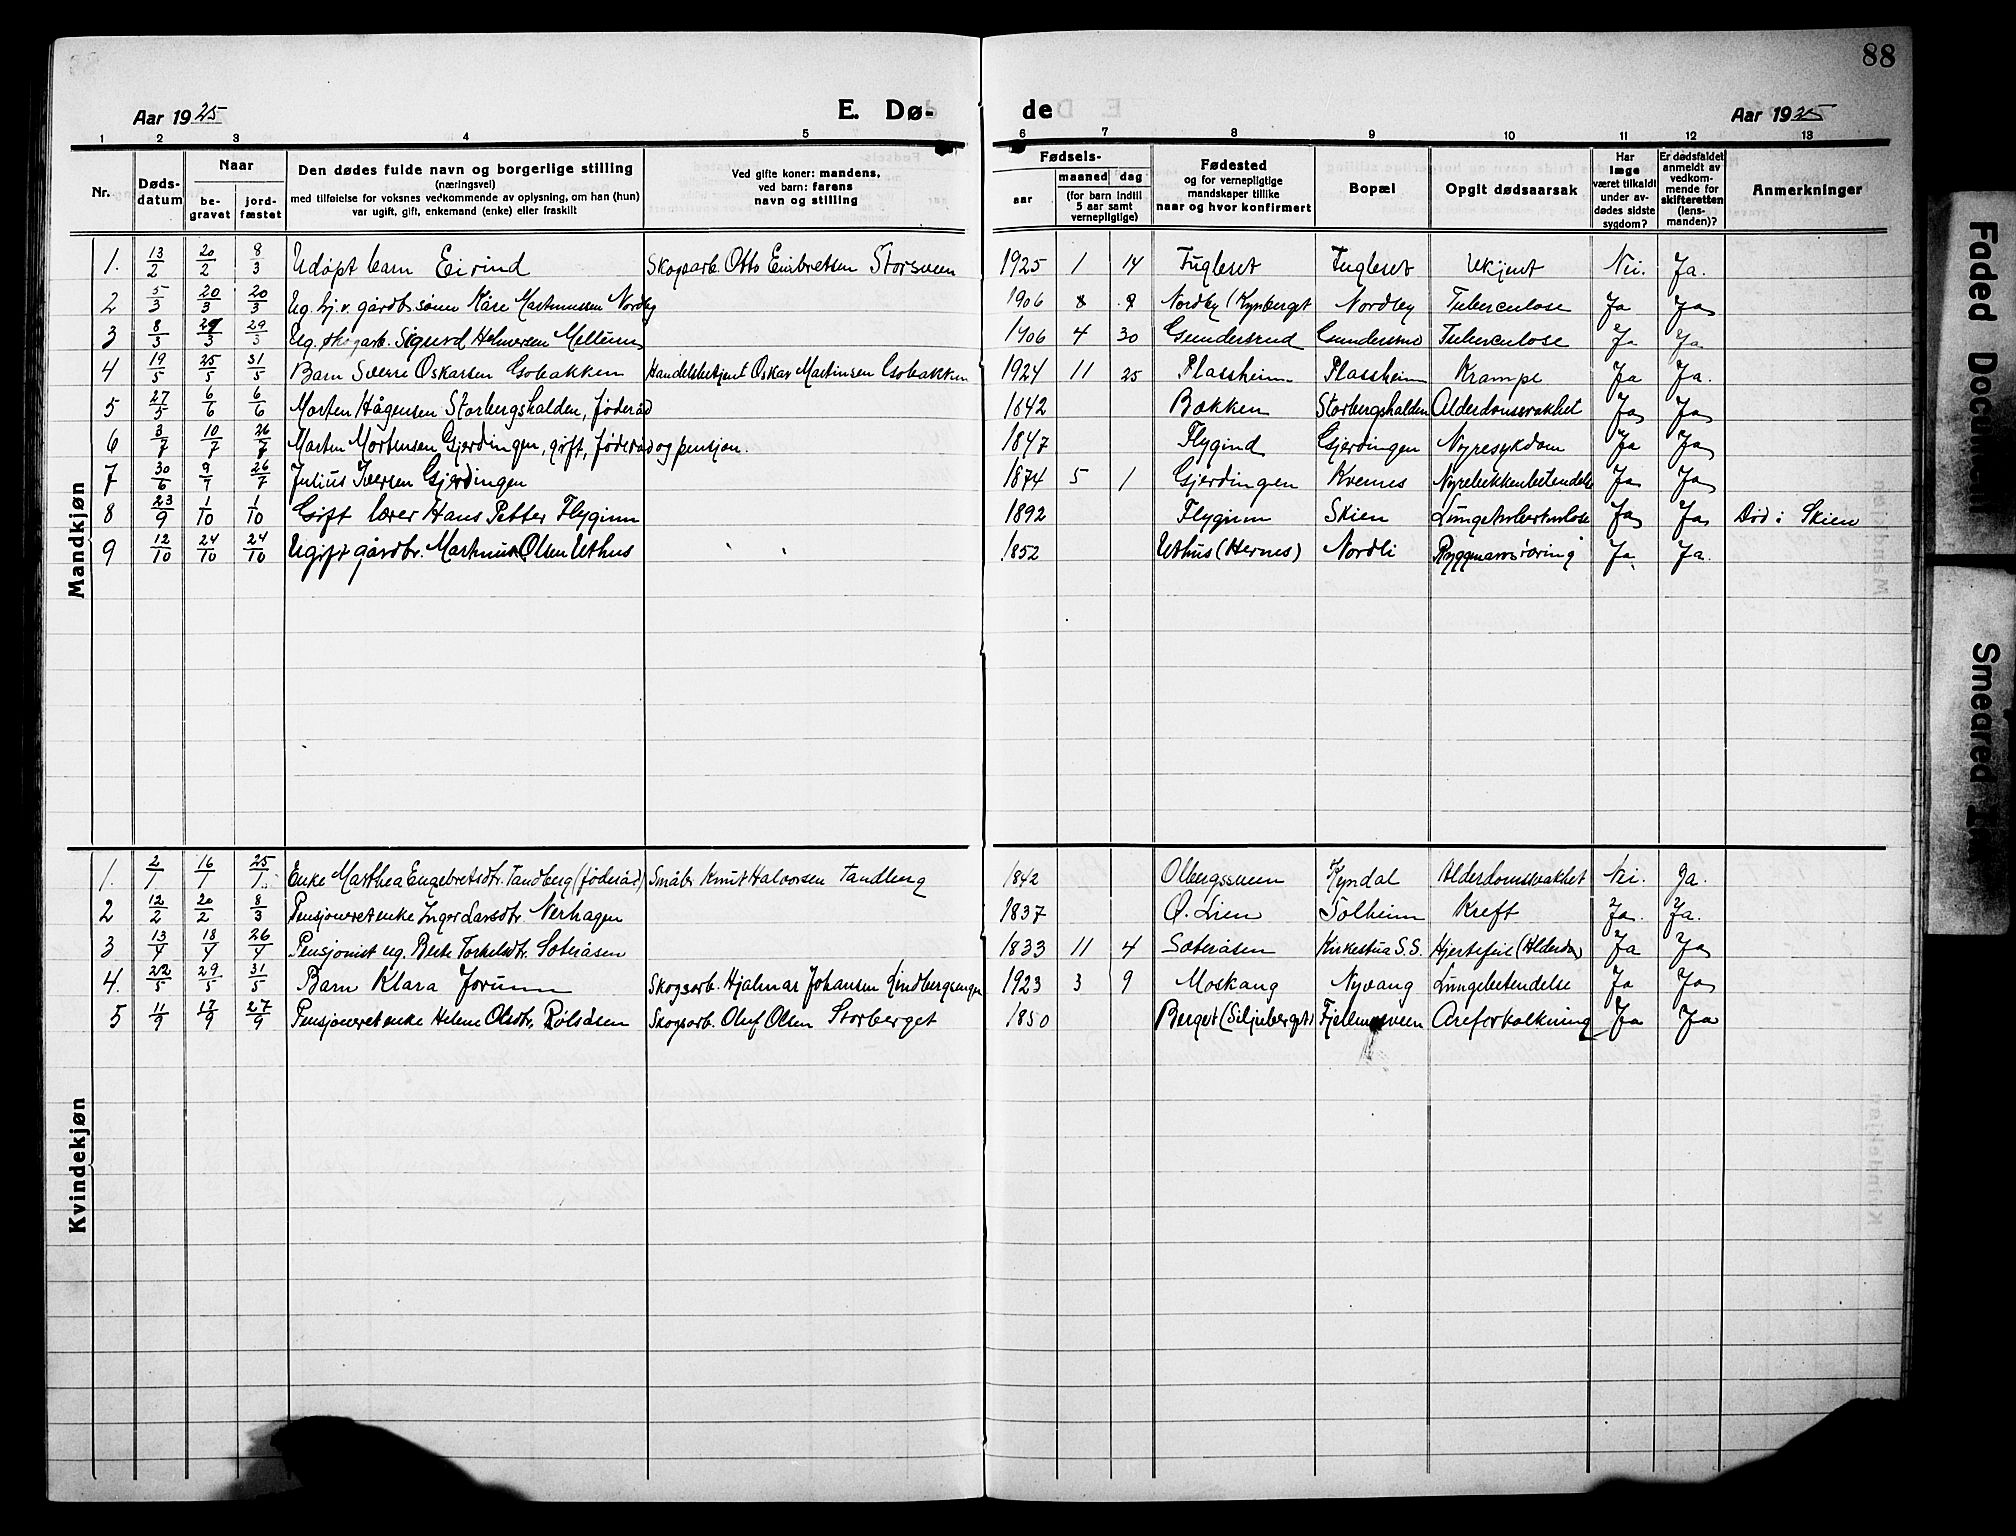 88
Aar 1925 E. Dø- de Aar 1925
1 2 3 4 5 6 7 8 9 10 11 12 13
Nr. Døds-datum Naar be-gravet jord-fæstet Den dødes fulde navn og borgerlige stilling (næringsvei) med tilføielse for voksnes vedkommende av oplysning, om han (hun) var ugift, gift, enkemand (enke) eller fraskilt Ved gifte koner: mandens, ved barn: farens navn og stilling Fødsels- aar maaned dag (for barn indtil 5 aar samt vernepligtige) Fødested og for vernepligtige mandskaper tillike naar og hvor konfirmert Bopæl Opgit dødsaarsak Har læge været tilkaldt under av-dødes sidste sygdom? Er dødsfaldet anmeldt av vedkom-mende for skifteretten (lens-manden)? Anmerkninger
Mandkjøn
1. 13/2 20/2 8/3 Udøpt barn Eivind Skogsarb. Otto Embretsen Storsveen 1925 1 14 Fugleset Fugleset Ukjent Nei. Ja.
2 5/3 20/3 20/3 Ug. hj.v. gårdb.sønn Kåre Martinussen Nordby 1906 8 9 Nordby (Kynberget Nordby Tuberculose Ja Ja
3 8/3 29/3 29/3 Ug. skogarb. Sigurd Helmersen Mellum 1906 4 30 Gundersrud Gundersrud Tuberculose Ja Ja
4 19/5 25/5 31/5 Barn Sverre Oskarsen Gobakken Handelsbetjent Oskar Martinsen Gobakken 1924 11 25 Plassheim Plassheim Krampe Ja Ja.
5 27/5 6/6 6/6 Morten Hågensen Storbergshalden, føderåd 1842 Bakken Storbergshalden Alderdomssvakhet Ja Ja
6 3/7 10/7 26/7 Martin Mortensen Gjerdingen, gift, føderåd og pensjon. 1847 Flygind Gjerdingen Nyresykdom Ja Ja
7 30/6 9/7 26/7 Julius Iversen Gjerdingen 1874 5 1 Gjerdingen Kvernes Nyrebekkenbetendelse Ja Ja
8 23/9 1/10 1/10 Gift lærer Hans Petter Flyginn 1892 Flyginn Skien Lungetuberkulose Ja Ja Død i Skien
9 12/10 24/10 24/10 Ugift gårdbr. Martinus Olsen Uthus 1852 Uthus (Hernes) Nordli Ryggmarvstæring Ja Ja.
Kvindekjøn
1. 2/1 16/1 25/1 Enke Marthea Engebretsdtr. Tandberg (føderåd) Småbr. Knut Halvorsen Tandberg 1842 Olbergsveen Kyndal Alderdomssvakhet Nei. Ja.
2 12/2 20/2 8/3 Pensjoneret enke Inger Larsdtr. Nerhagen 1837 Ø. Lien Solheim Kreft Ja. Ja.
3 13/4 18/4 26/4 Pensjonist ug. Berte Torkelsdtr. Sæteråsen 1833 11 4 Sæteråsen Kirkestua S.S. Hjertefeil (Alderdom) Ja Ja
4. 22/5 29/5 31/5 Barn Klara Jorunn Skogsarb. Hjalmar Johansen Lindbergsengen 1923 3 9 Moskang Nyvang Lungebetendelse Ja Ja
5 11/9 17/9 27/9 Pensjoneret enke Helene Olsdtr. Rølsåsen Skogsarb. Oluf Olsen Storberget 1850 Berget (Siljuberget) Fjellmosveen Åreforkalkning Ja Ja
Faded Document
Smeared